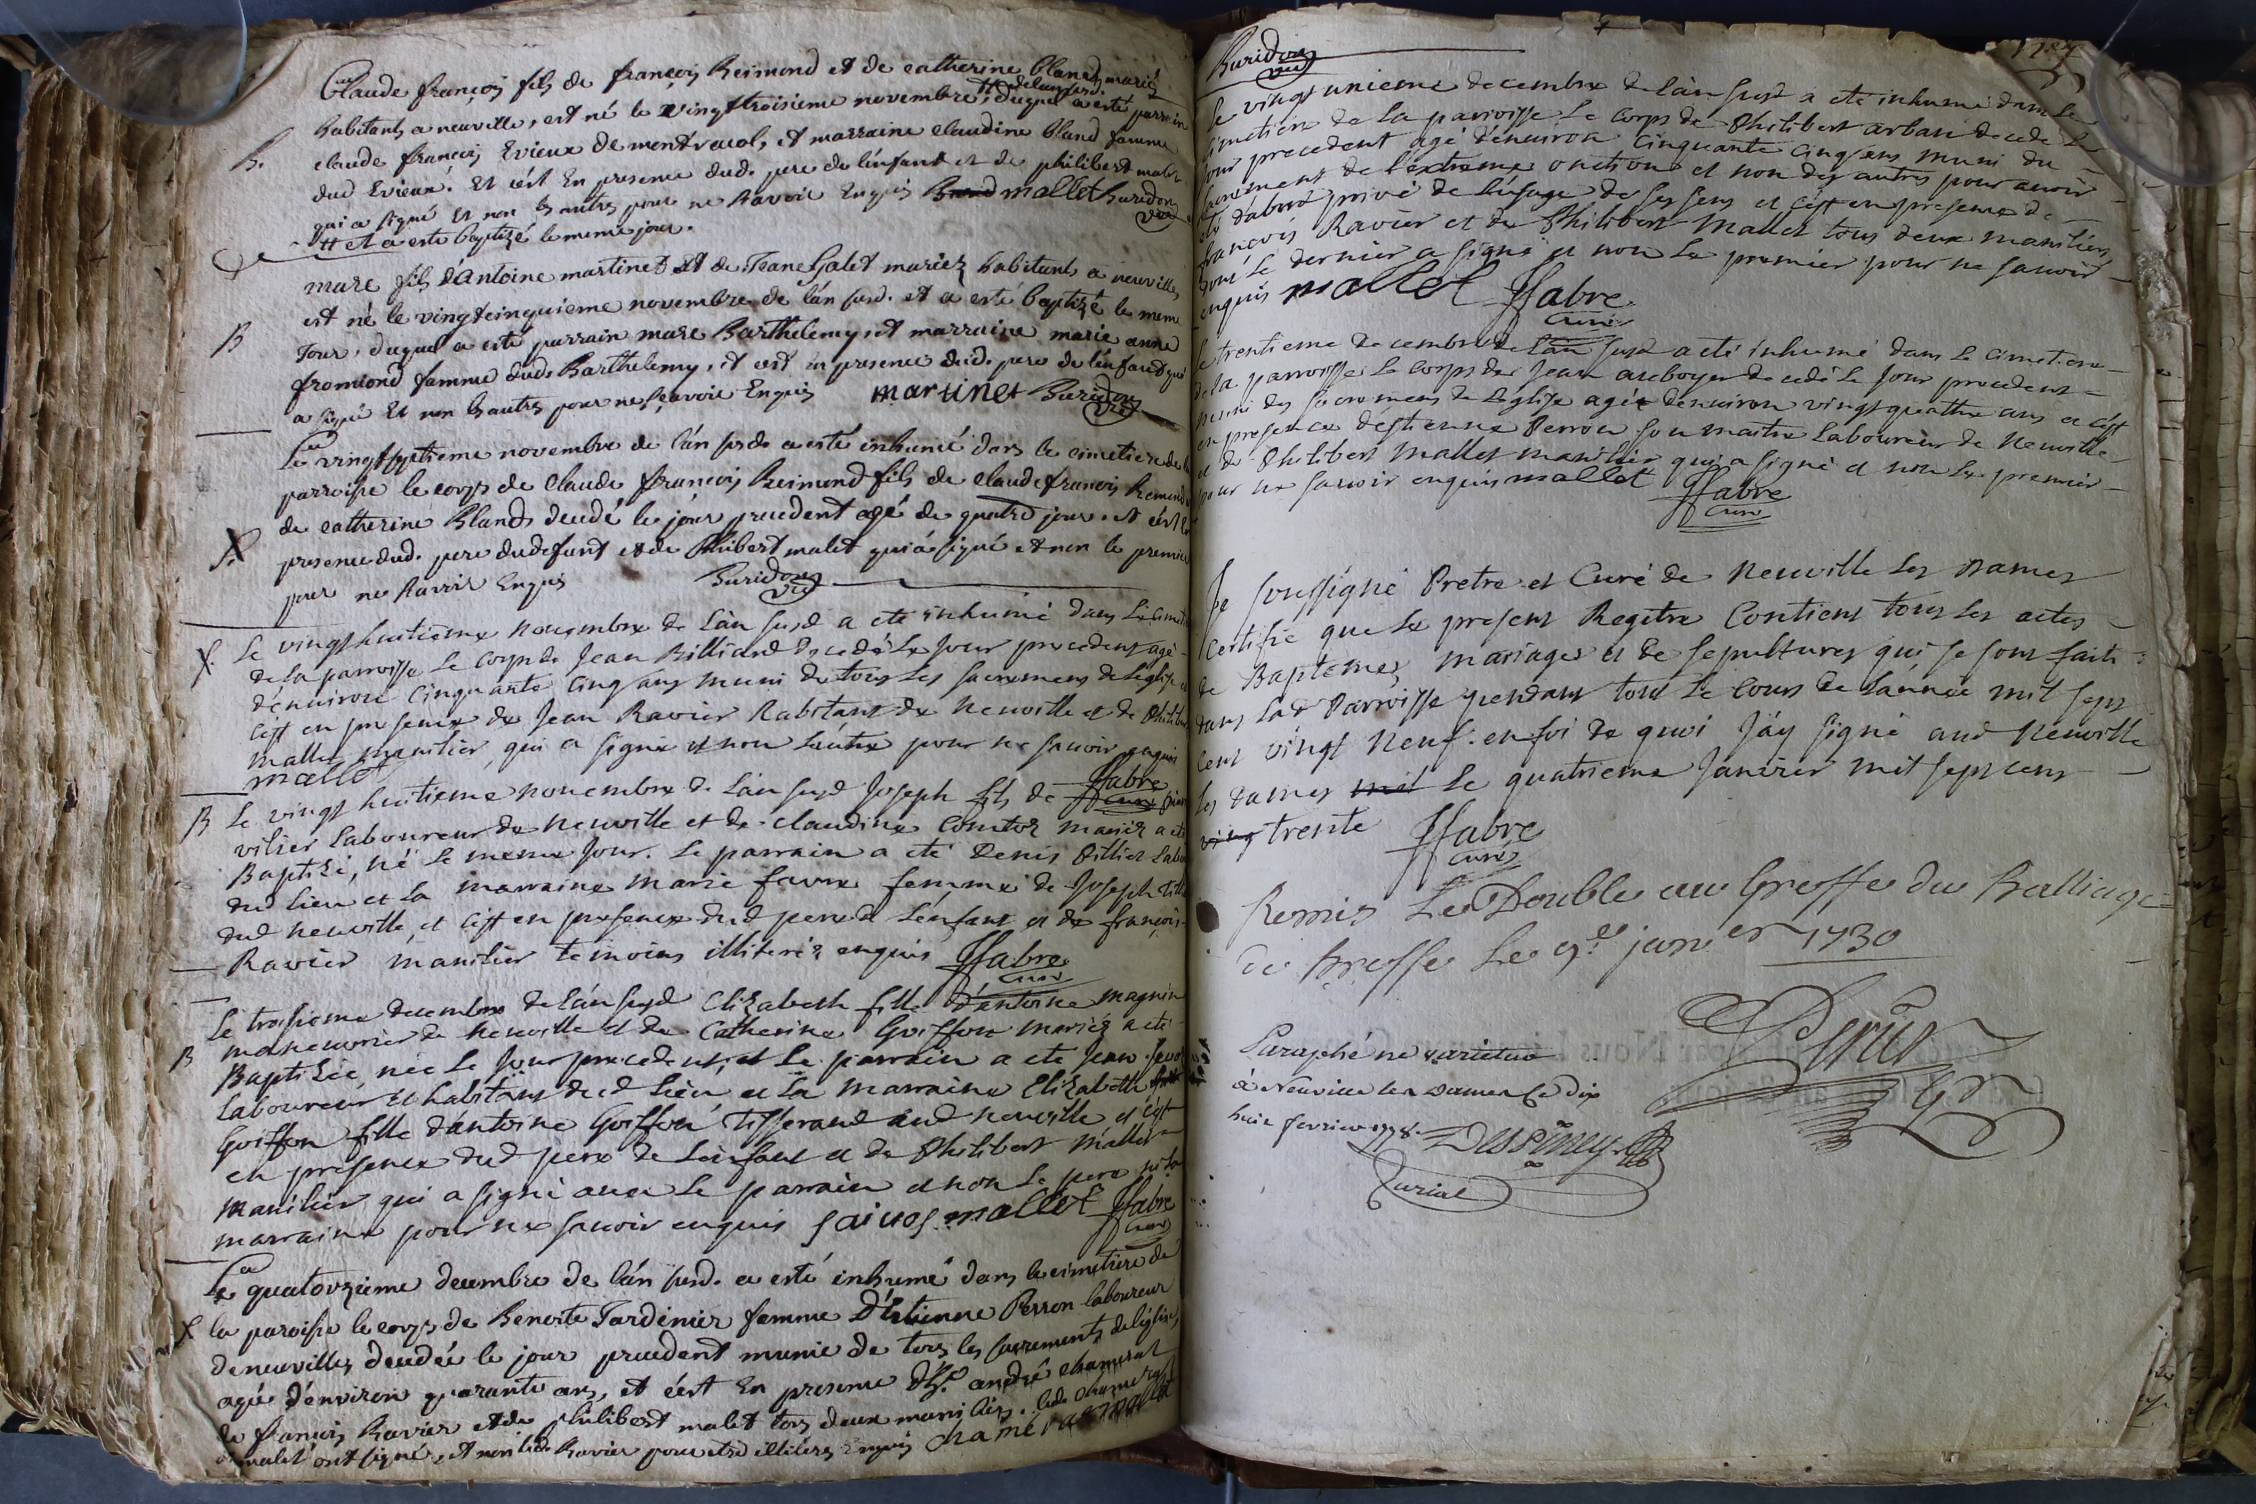 Claude françois fils de françois Reimond et de catherine Bland mariés
habitants a neuville, est né le vingttroisieme novembre # de l'an susd. duquel a esté parrain
B.
claude françois Evieux de montracol, et marraine claudine Bland femme
dud Evieux. Et c'est En presence dud. pere de l'enfant et de philibert malet
qui a signé Et non les autres pour ne scavoir Enquis mallet Buridon
vic
# et a esté baptizé le meme jour.
marc fils d'antoine martinet et de Jeane Galet mariez habitants a neuville
est né le vingtcinquieme novembre de l'an susd. et a esté baptizé le meme
B
Jour, duquel a esté parrain marc Barthelemy, et marraine marie anne
fromiond femme dud. Barthelemy, et c'est En presence dud. pere de l'enfant qui
a signé Et non les autres pour ne sçavoir Enquis martinet Buridon
vic
Le vingtseptieme novembre de l'an susd. a esté inhumé dans le cimetiere de la
parroisse le corps de claude françois Reimond fils de claude françois Reimond
de catherine Bland decedé le jour precedent agé de quatre jours. et c'est En
presence dud. pere dudefunt et de Philibert malet qui a signé et non le premier
pour ne scavoir Enquis Buridon
vic
Le vingt huitieme novembre de l'an susd a eté inhumé dans le cimet
de la parroisse le corps de Jean Billiard decedé le Jour precedent agé
d'environ cinquante cinq ans muni de tous les sacremens de l'eglise et
c'est en presence de Jean Ravier habitant de Neuville et de Philibert
Mallet manilier, qui a signé et non l'autre pour ne savoir enquis
mallet
ffabre
curé
B
Le vingt huitieme novembre de l'an susd Joseph fils de
vilier laboureur de Neuville et de claudine Comtoz mariéz a eté
Baptizé, né le meme Jour. le parrain a eté Denis
dud lieu et la marraine marie favre femme de Joseph
dud Neuville, et c'est en presence dud pere de l'enfant et de françois
Ravier manilier temoins illiteréz enquis ffabre
curé
Le troisieme decembre de l'an susd Elizabeth fille d'antoine magnin
B
manouvrier de Neuville et de Catherine Goiffon mariéz a eté
Baptizée, née le Jour precedent, et le parrain a eté Jean
laboureur et habitant dud lieu et la marraine Elizabeth
Goiffon fille d'antoine Goiffon Tisserand aud neuville et c'est
en presence dud pere de l'enfant et de Philibert Mallet
manilier qui a signé avec le parrain et non le pere ni la
marraine pour ne savoir enquis mallet ffabre
curé
Le quatorzieme decembre de l'an susd. a esté inhumé dans le cimetiere de
la paroisse le corps de Benoite Tardinier femme D'Etienne Perron laboureur
de neuville, decedée le jour precedent munie de tous les sacrements de l'eglise,
agée d'environ quarante ans, et c'est En presence d'h. andré chamerat
de françois Ravier et de philibert malet tous deux maniliers. led. chamerat
malet ont signé, et non led. Ravier pour etre illiteré enquis
Buridon
vic
Le vingt unieme decembre de l'an susd a eté inhumé dans le
cimetiere de la parroisse le corps de Philibert arban decedé le
Jour precedent agé d'environ cinquante cinq ans muni du
sacrement de l'extreme onction et non des autres pour avoir
eté d'abord privé de l'usage de ses sens et c'est en presence de
françois Ravier et de Philibert Mallet tous deux maniliers
dont le dernier a signé et non le premier pour ne savoir
enquis mallet ffabre
curé
Le trentieme decembre de l'an susd a eté inhumé dans le cimetiere
de la parroisse le corps de Jean auboyer decedé le Jour precedent
muni des sacremens de l'eglise agé d'environ vingt quattre ans et c'est
en presence d'estienne Perron son maitre laboureur de Neuville
et de Philibert Mallet manilier qui a signé et non le premier
pour ne savoir enquis mallet ffabre
curé
Je soussigné Pretre et Curé de Neuville les Dames
Certifie que le present Regitre Contient tous les actes
de Baptemes, mariages et de sepultures qui se sont faits
dans lad Parroisse pendant tout le Cours de l'année mil sept
cent vingt neuf. en foi de quoi J'ay signé aud Neuville
les dames mil le quatrieme Janvier mil sept cens
ving trente ffabre
curé
Remis Le Double au Greffe du Balliage
de Bresse Le 9.e janvier 1730
Paraphé ne varietur
à Neuville les Dames Ce dix
huit fevrier 1778.
Curial